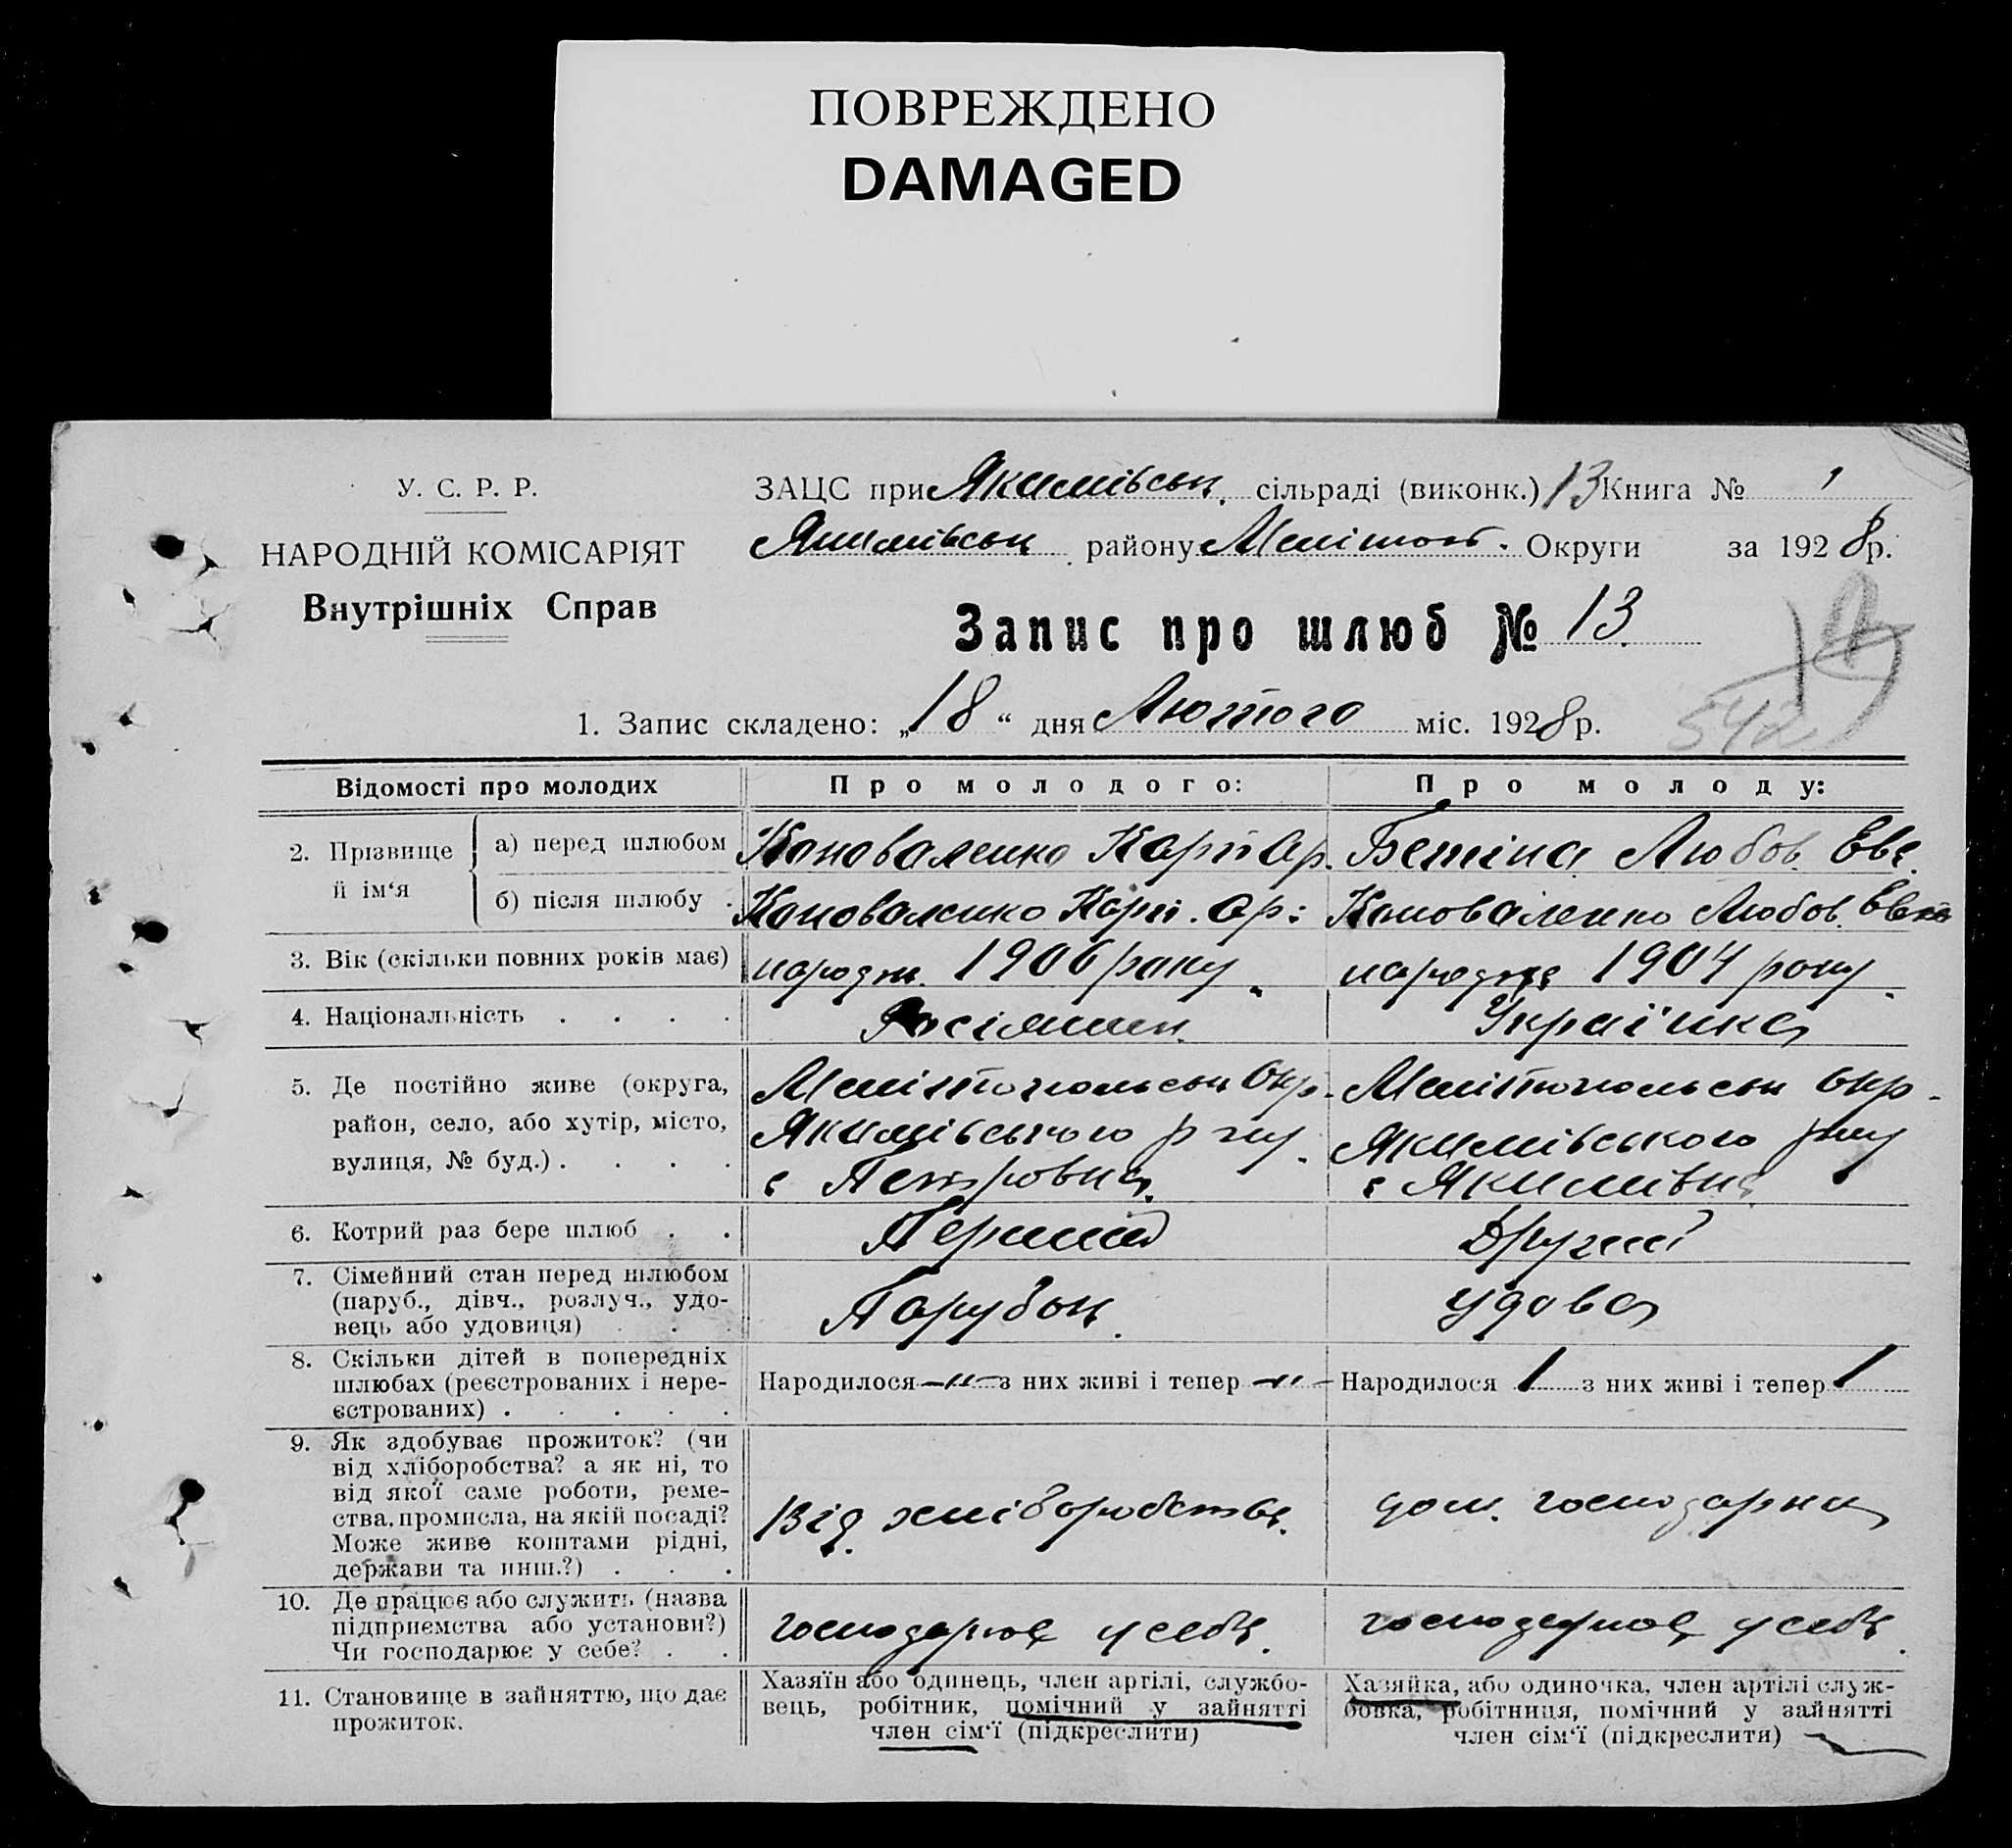 ПОВРЕЖДЕНО
DAMAGED
У. С. Р. Р.
НАРОДНІЙ КОМІСАРІЯТ
Внутрішніх Справ
ЗАЦС при Якимівськ. сільраді (виконк.) 13 Книга № 1
Якимівськ. району Меліtoп. Округи за 1928 р.
Запис про шлюб № 13
542
1. Запис складено: „18“ дня Лютого міс. 1928 р.
Відомості про молодих Про молодого: Про молоду:
2. Прізвище й ім‘я
а) перед шлюбом Коноваленко Карп Ар. Бетіна Любов Евг.
б) після шлюбу . Коноваленко Карп. Ар: Коноваленко Любов
3. Вік (скільки повних років має) народж. 1906 року народж 1904 року
4. Національність . . . . Росіянин Українка
5. Де постійно живе (округа, Мелітопольськ Окр. Мелітопольськ окр.
район, село, або хутір, місто, Якимівського р-ну Якимівського р-ну
вулиця, № буд.) . . . . с Петровка с Якимівка
6. Котрий раз бере шлюб . . Перший Другий
7. Сімейний стан перед шлюбом
(паруб., дівч., розлуч., удо-
вець або удовиця) . . . Парубок удова
8. Скільки дітей в попередніх
шлюбах (реєстрованих і нере-
єстрованих) . . . . . Народилося —"— з них живі і тепер —"— Народилося 1 з них живі і тепер 1
9. Як здобуває прожиток? (чи
від хліборобства? а як ні, то
від якої саме роботи, реме-
ства, промисла, на якій посаді?
Може живе коштами рідні,
держави та инш.?) . . . Від хліборобства. дом. господарка
10. Де працює або служить (назва
підприємства або установи?)
Чи господарює у себе? . . господарює у себе. господарює у себе.
11. Становище в зайняттю, що дає
прожиток.
Хазяїн або одинець, член артілі, службо-
вець, робітник, помічний у зайнятті
член сім‘ї (підкреслити)
Хазяйка, або одиночка, член артілі служ-
бовка, робітниця, помічний у зайнятті
член сім‘ї (підкреслити)